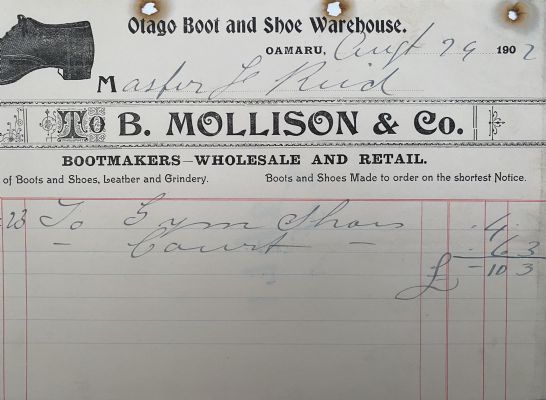 Otago Boot and Shoe Warehouse.
OAMARU, Augt 29 1902
Master J Reid
To B. MOLLISON & Co.
BOOTMAKERS—WHOLESALE AND RETAIL.
of Boots and Shoes, Leather and Grindery. Boots and Shoes Made to order on the shortest Notice.
23 To Gym Shoes . 4 .
" Court " . 6 3
£ - 10 3